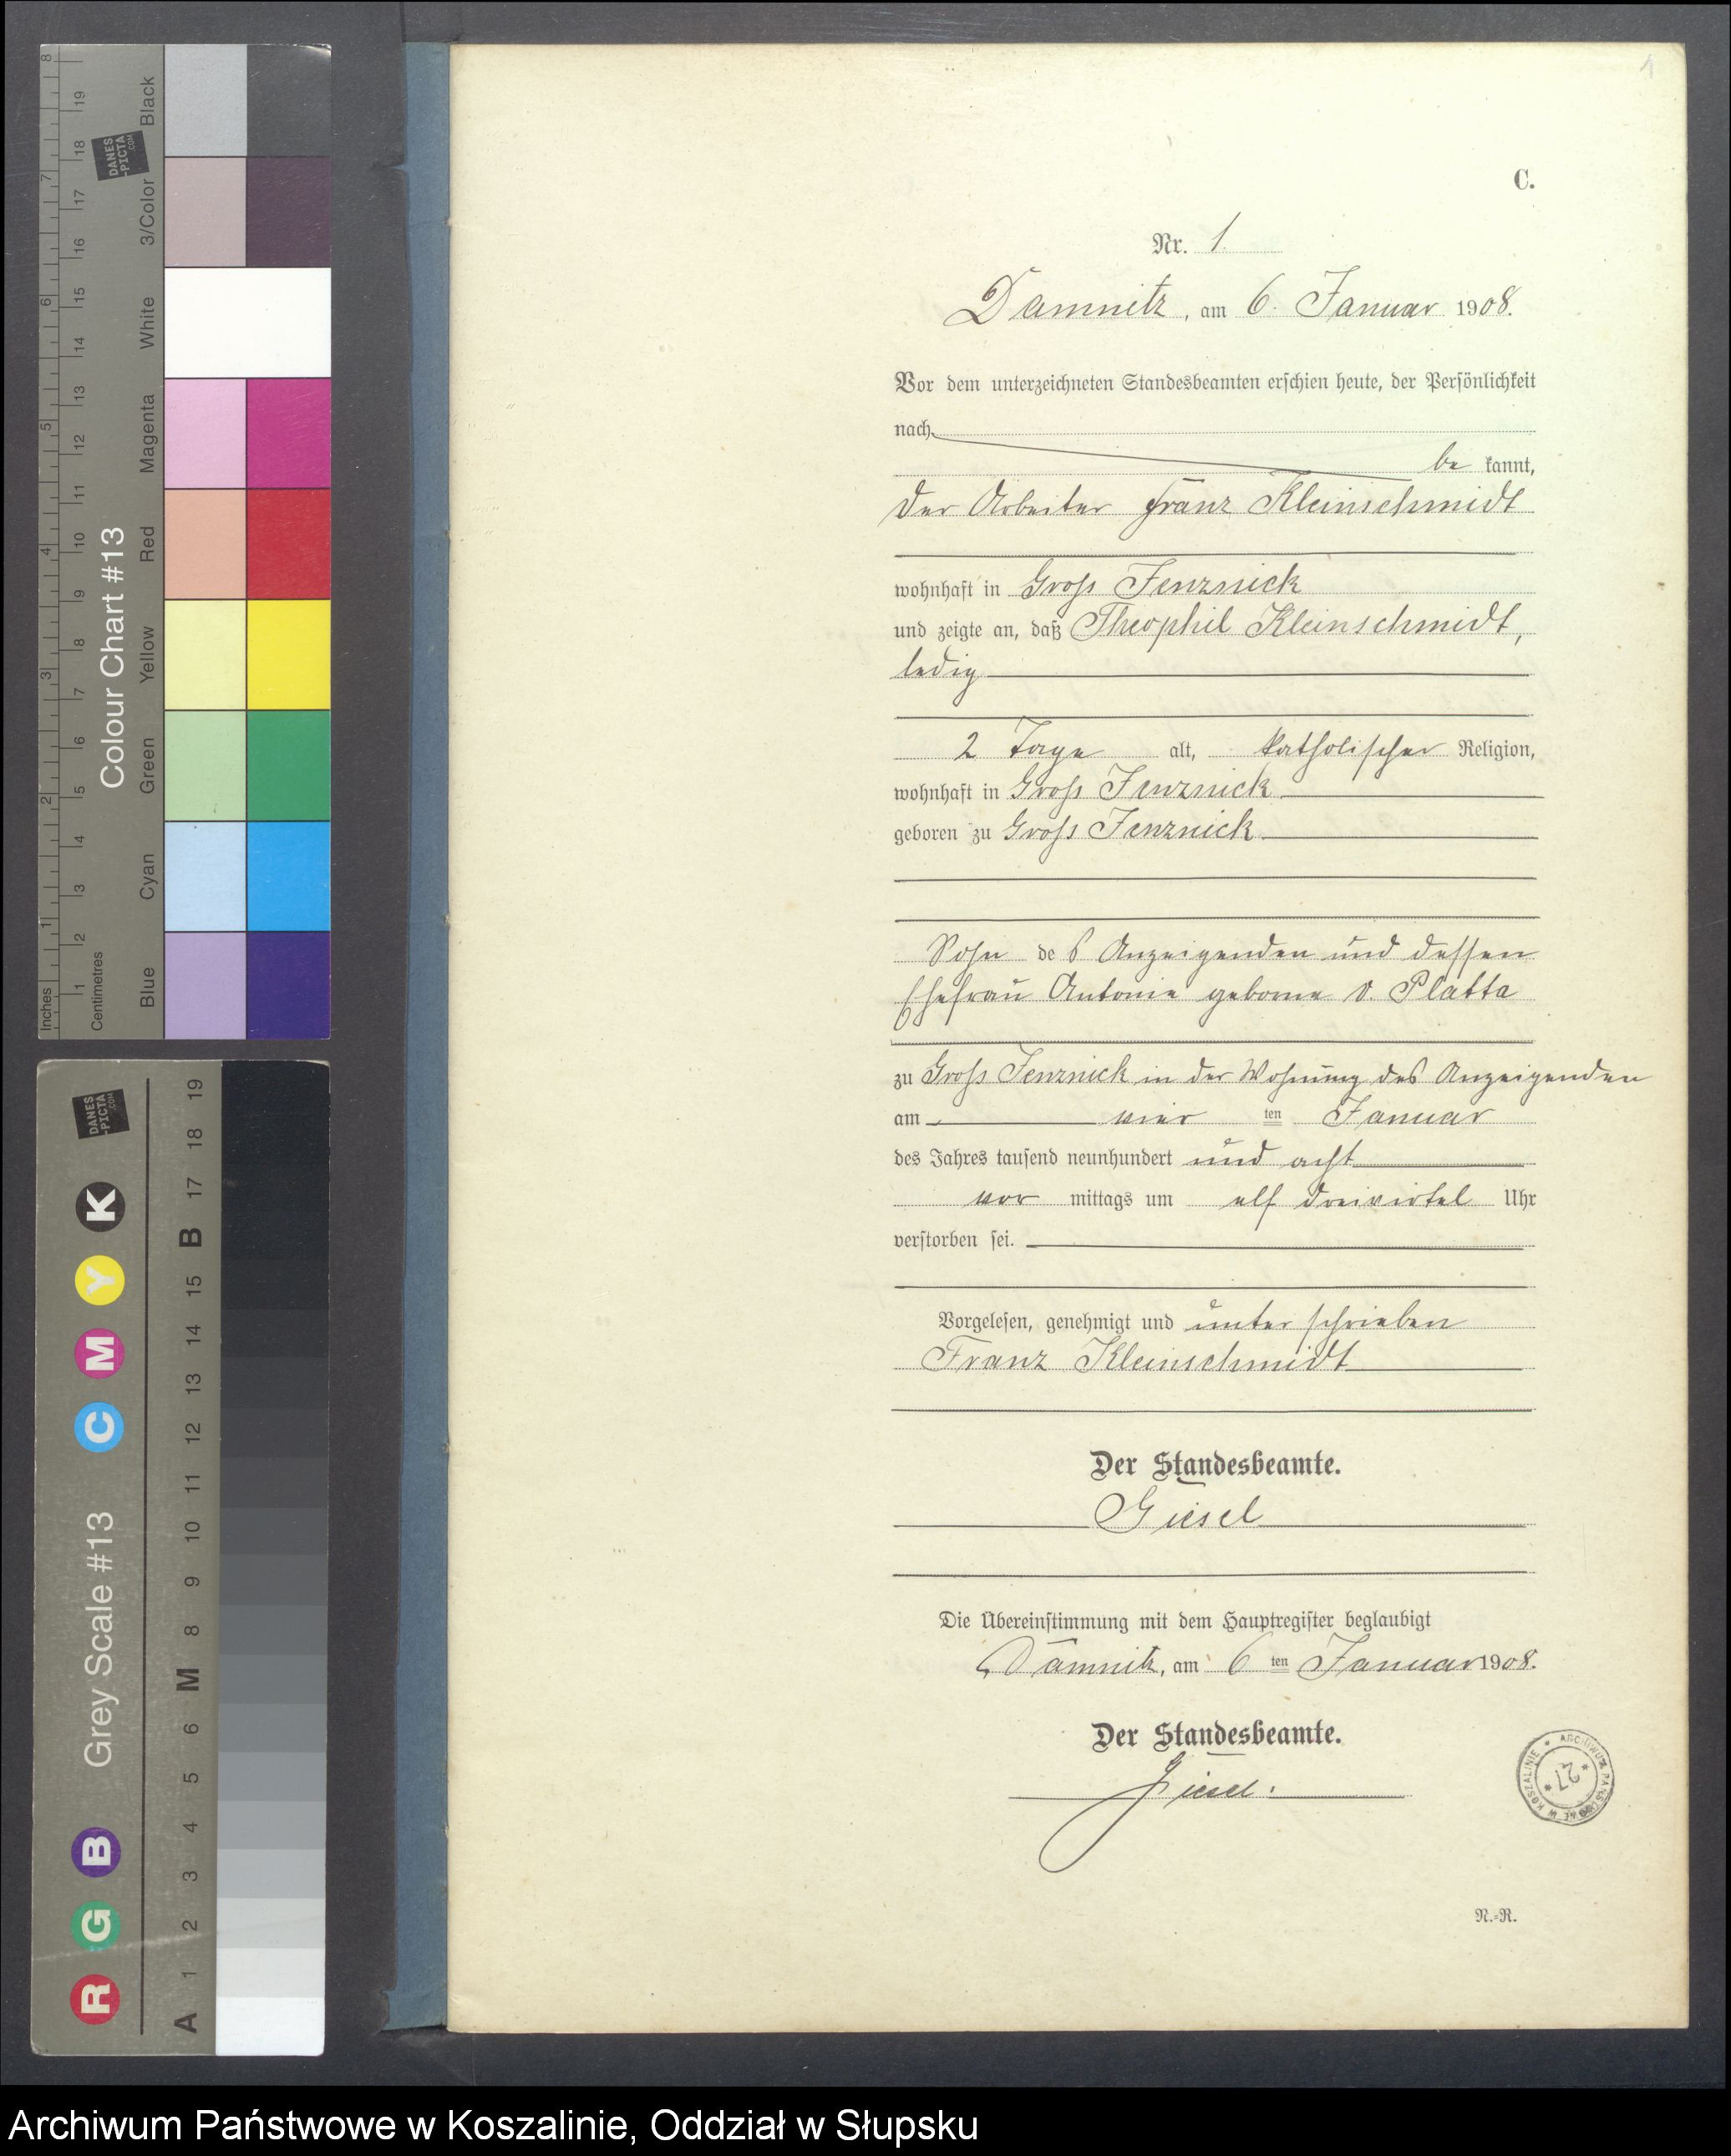 1
C.
Nr. 1.
Damnitz, am 6. Januar 1908.
Vor dem unterzeichneten Standesbeamten erschien heute, der Persönlichkeit
nach
be kannt,
der Arbeiter Franz Kleinschmidt
wohnhaft in Groß Jenznick
und zeigte an, daß Theophil Kleinschmidt,
ledig
2 Tage alt, katholischer Religion,
wohnhaft in Groß Jenznick
geboren zu Groß Jenznick
Sohn des Anzeigenden und dessen
Ehefrau Antonie geborne v. Platta
zu Groß Jenznick in der Wohnung des Anzeigenden
am vier ten Januar
des Jahres tausend neunhundert und acht
vor mittags um elf dreivirtel Uhr
verstorben sei.
Vorgelesen, genehmigt und unterschrieben
Franz Kleinschmidt
Der Standesbeamte.
Giesel
Die Übereinstimmung mit dem Hauptregister beglaubigt
Damnitz, am 6 ten Januar 1908.
Der Standesbeamte.
Giesel.
* ARCHIWUM PAŃSTWOWE W KOSZALINIE
* 27 *
N.-R.
Colour Chart #13
DANES
-PICTA
.COM
Blue Cyan Green Yellow Red Magenta White 3/Color Black
Inches 1 2 3 4 5 6 7 8
Centimetres 1 2 3 4 5 6 7 8 9 10 11 12 13 14 15 16 17 18 19
Grey Scale #13
DANES
-PICTA
.COM
R G B C M Y K
A 1 2 3 4 5 6 M 8 9 10 11 12 13 14 15 B 17 18 19
Archiwum Państwowe w Koszalinie, Oddział w Słupsku